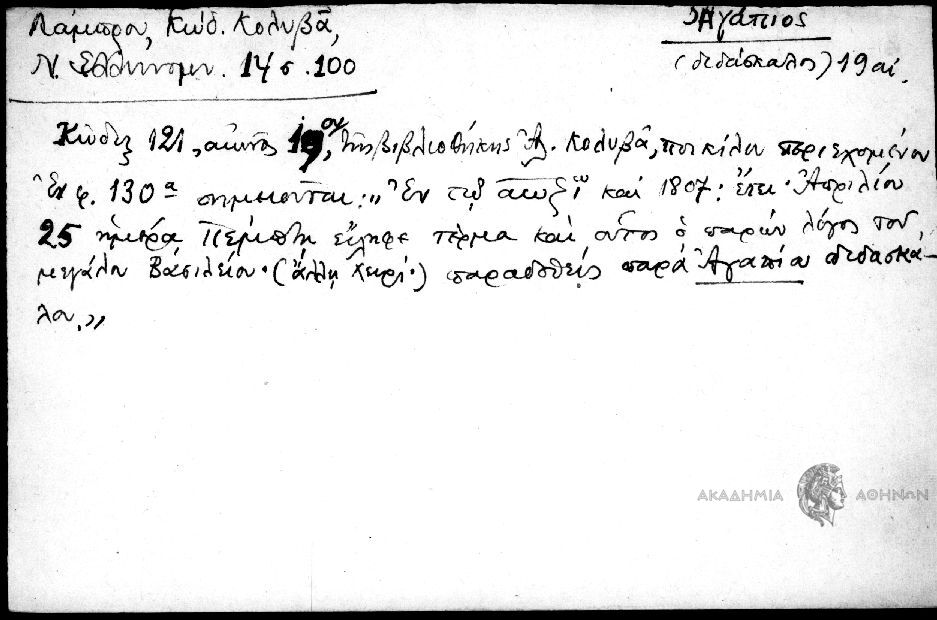 Λάμπρου, Κώδ. Κολυβᾶ,
Ν. Ἑλληνομν. 14 σ. 100
Ἀγάπιος
(διδάσκαλος) 19 αἰ.
Κώδιξ 121, αἰῶνος 19ου, τῆς βιβλιοθήκης Ἀλ. Κολυβᾶ, ποικίλου περιεχομένου
Ἐν φ. 130α σημειοῦται: „Ἐν τῷ αωξῳ καὶ 1807: ἔτει· Ἀπριλίου
25 ἡμέρᾳ Πέμπτῃ εἴληφε τέρμα καὶ οὗτος ὁ παρὼν λόγος τοῦ
μεγάλου Βασιλείου· (ἄλλῃ χειρὶ·) παραδοθεὶς παρὰ Ἀγαπίου διδασκά-
λου.„
ΑΚΑΔΗΜΙΑ ΑΘΗΝΩΝ